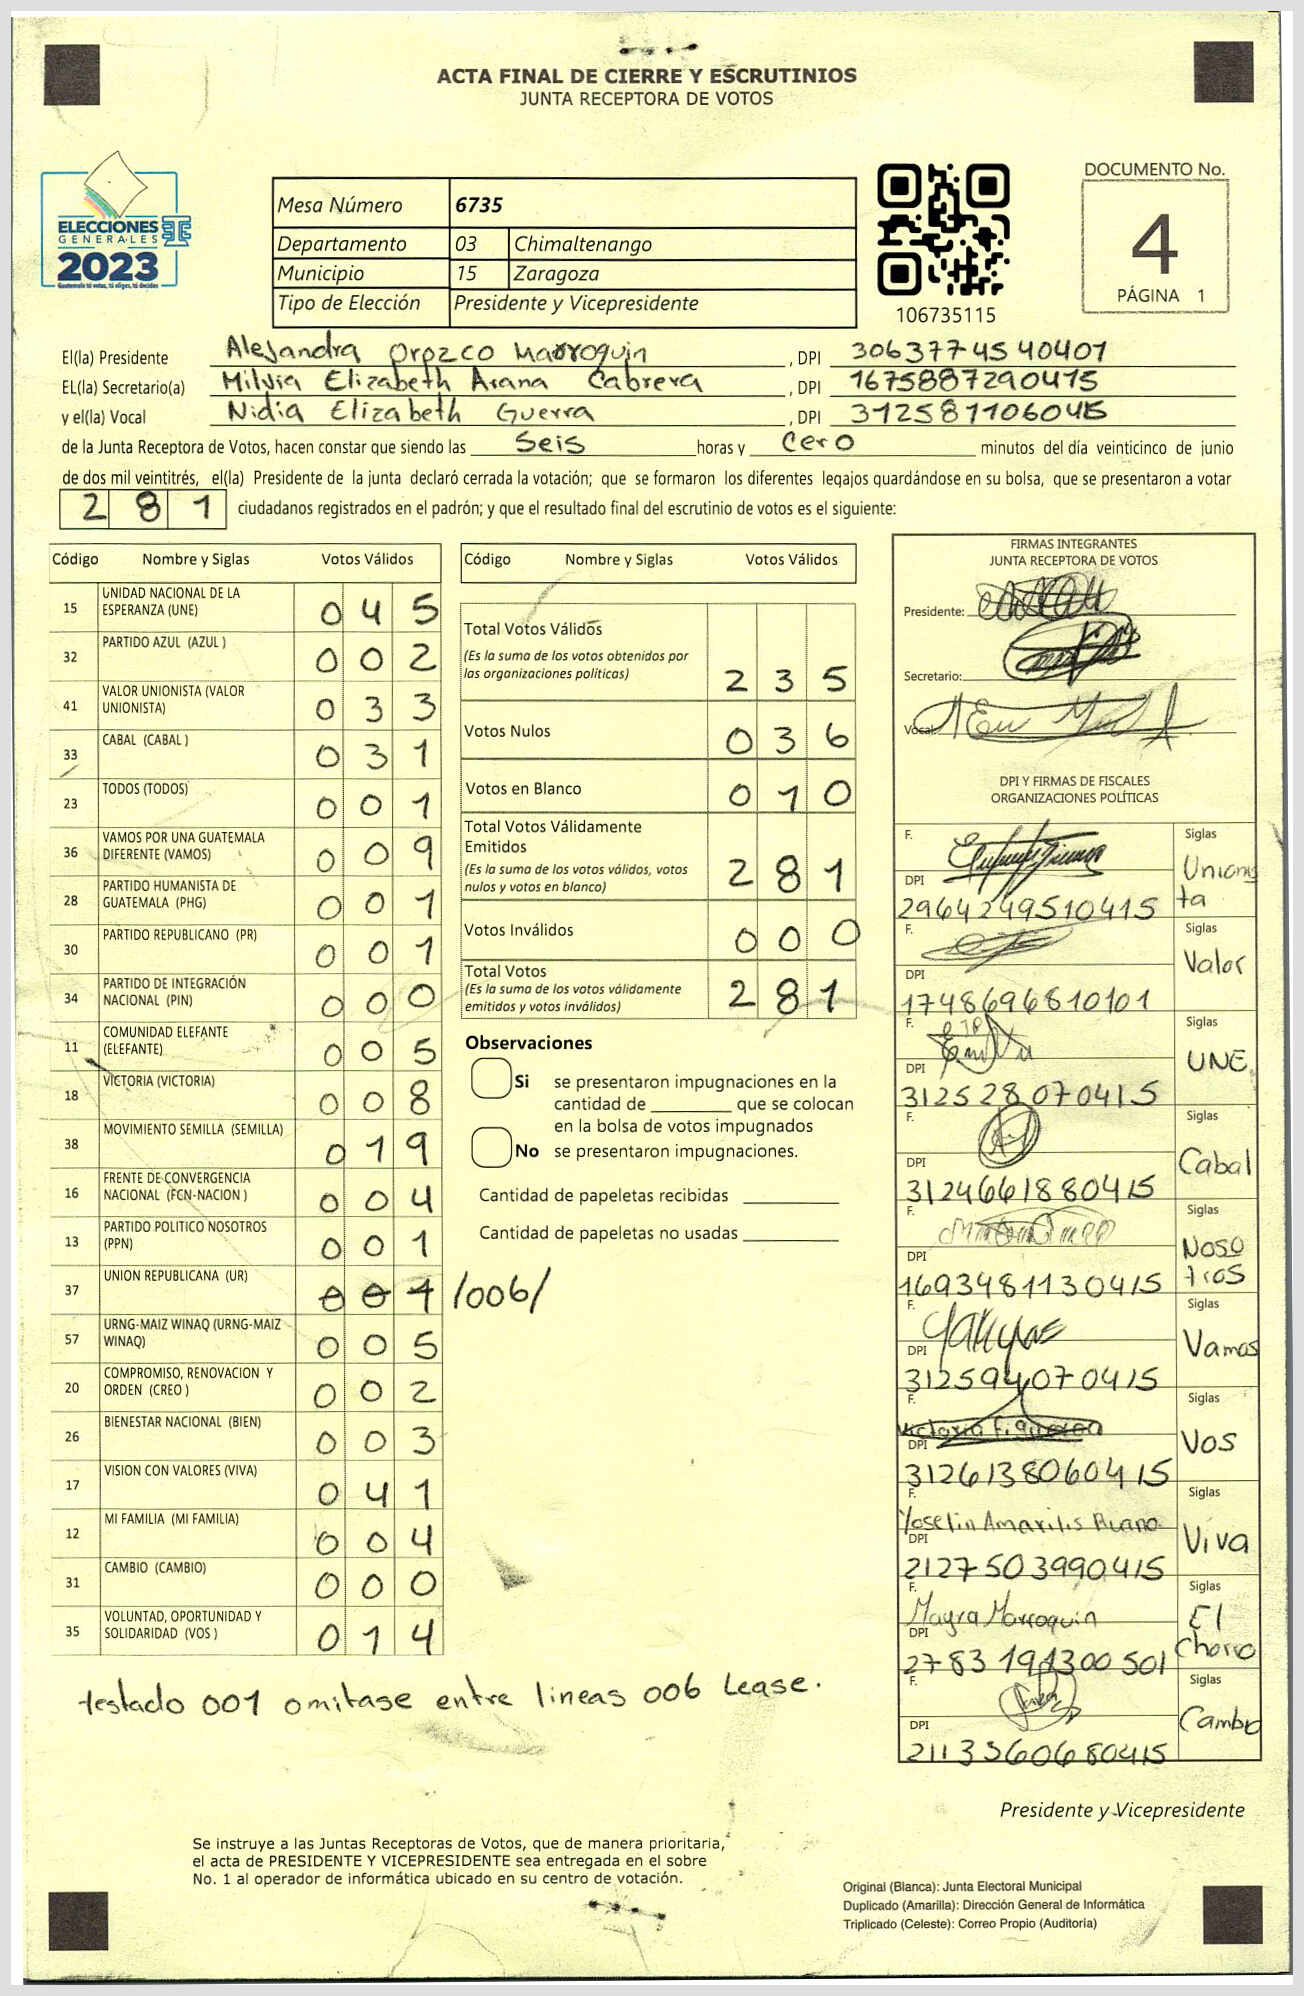 ACTA FINAL DE CIERRE Y ESCRUTINIOS
JUNTA RECEPTORA DE VOTOS
ELECCIONES
GENERALES
2023
Guatemala tú votas, tú eliges, tú decides
Mesa Número 6735
Departamento 03 Chimaltenango
Municipio 15 Zaragoza
Tipo de Elección Presidente y Vicepresidente
106735115
DOCUMENTO No.
4
PÁGINA 1
El(la) Presidente Alejandra Orozco Marroquin , DPI 3063774540401
EL(la) Secretario(a) Milvia Elizabeth Arana Cabrera , DPI 1675887290415
y el(la) Vocal Nidia Elizabeth Guerra , DPI 3125811060415
de la Junta Receptora de Votos, hacen constar que siendo las Seis horas y Cero minutos del día veinticinco de junio
de dos mil veintitrés, el(la) Presidente de la junta declaró cerrada la votación; que se formaron los diferentes legajos guardándose en su bolsa, que se presentaron a votar
281 ciudadanos registrados en el padrón; y que el resultado final del escrutinio de votos es el siguiente:
Código Nombre y Siglas Votos Válidos
15 UNIDAD NACIONAL DE LA ESPERANZA (UNE) 045
32 PARTIDO AZUL (AZUL ) 002
41 VALOR UNIONISTA (VALOR UNIONISTA) 033
33 CABAL (CABAL ) 031
23 TODOS (TODOS) 001
36 VAMOS POR UNA GUATEMALA DIFERENTE (VAMOS) 009
28 PARTIDO HUMANISTA DE GUATEMALA (PHG) 001
30 PARTIDO REPUBLICANO (PR) 001
34 PARTIDO DE INTEGRACIÓN NACIONAL (PIN) 000
11 COMUNIDAD ELEFANTE (ELEFANTE) 005
18 VICTORIA (VICTORIA) 008
38 MOVIMIENTO SEMILLA (SEMILLA) 019
16 FRENTE DE CONVERGENCIA NACIONAL (FCN-NACION ) 004
13 PARTIDO POLITICO NOSOTROS (PPN) 001
37 UNION REPUBLICANA (UR) 001 /006/
57 URNG-MAIZ WINAQ (URNG-MAIZ WINAQ) 005
20 COMPROMISO, RENOVACION Y ORDEN (CREO ) 002
26 BIENESTAR NACIONAL (BIEN) 003
17 VISION CON VALORES (VIVA) 041
12 MI FAMILIA (MI FAMILIA) 004
31 CAMBIO (CAMBIO) 000
35 VOLUNTAD, OPORTUNIDAD Y SOLIDARIDAD (VOS ) 014
testado 001 omitase entre lineas 006 Lease.
Código Nombre y Siglas Votos Válidos
Total Votos Válidos
(Es la suma de los votos obtenidos por
las organizaciones políticas) 235
Votos Nulos 036
Votos en Blanco 010
Total Votos Válidamente
Emitidos
(Es la suma de los votos válidos, votos
nulos y votos en blanco) 281
Votos Inválidos 000
Total Votos
(Es la suma de los votos válidamente
emitidos y votos inválidos) 281
Observaciones
Si se presentaron impugnaciones en la
cantidad de ________ que se colocan
en la bolsa de votos impugnados
No se presentaron impugnaciones.
Cantidad de papeletas recibidas
Cantidad de papeletas no usadas
FIRMAS INTEGRANTES
JUNTA RECEPTORA DE VOTOS
Presidente:
Secretario:
Vocal:
DPI Y FIRMAS DE FISCALES
ORGANIZACIONES POLÍTICAS
F. Siglas Unionista
DPI 2964249510415
F. Siglas Valor
DPI 1748696810101
F. Siglas UNE
DPI 312528070415
F. Siglas Cabal
DPI 3124661880415
F. Siglas Nosotros
DPI 1693481130415
F. Siglas Vamos
DPI 312594070415
F. Victoria Figueroa Siglas Vos
DPI 3126138060415
F. Yoselin Amarilis Siglas Viva
DPI 2127503990415
F. Mayra Marroquin Siglas El Chorro
DPI 2783191300501
F. Siglas Cambio
DPI 2113560680415
Presidente y Vicepresidente
Se instruye a las Juntas Receptoras de Votos, que de manera prioritaria,
el acta de PRESIDENTE Y VICEPRESIDENTE sea entregada en el sobre
No. 1 al operador de informática ubicado en su centro de votación.
Original (Blanca): Junta Electoral Municipal
Duplicado (Amarilla): Dirección General de Informática
Triplicado (Celeste): Correo Propio (Auditoria)